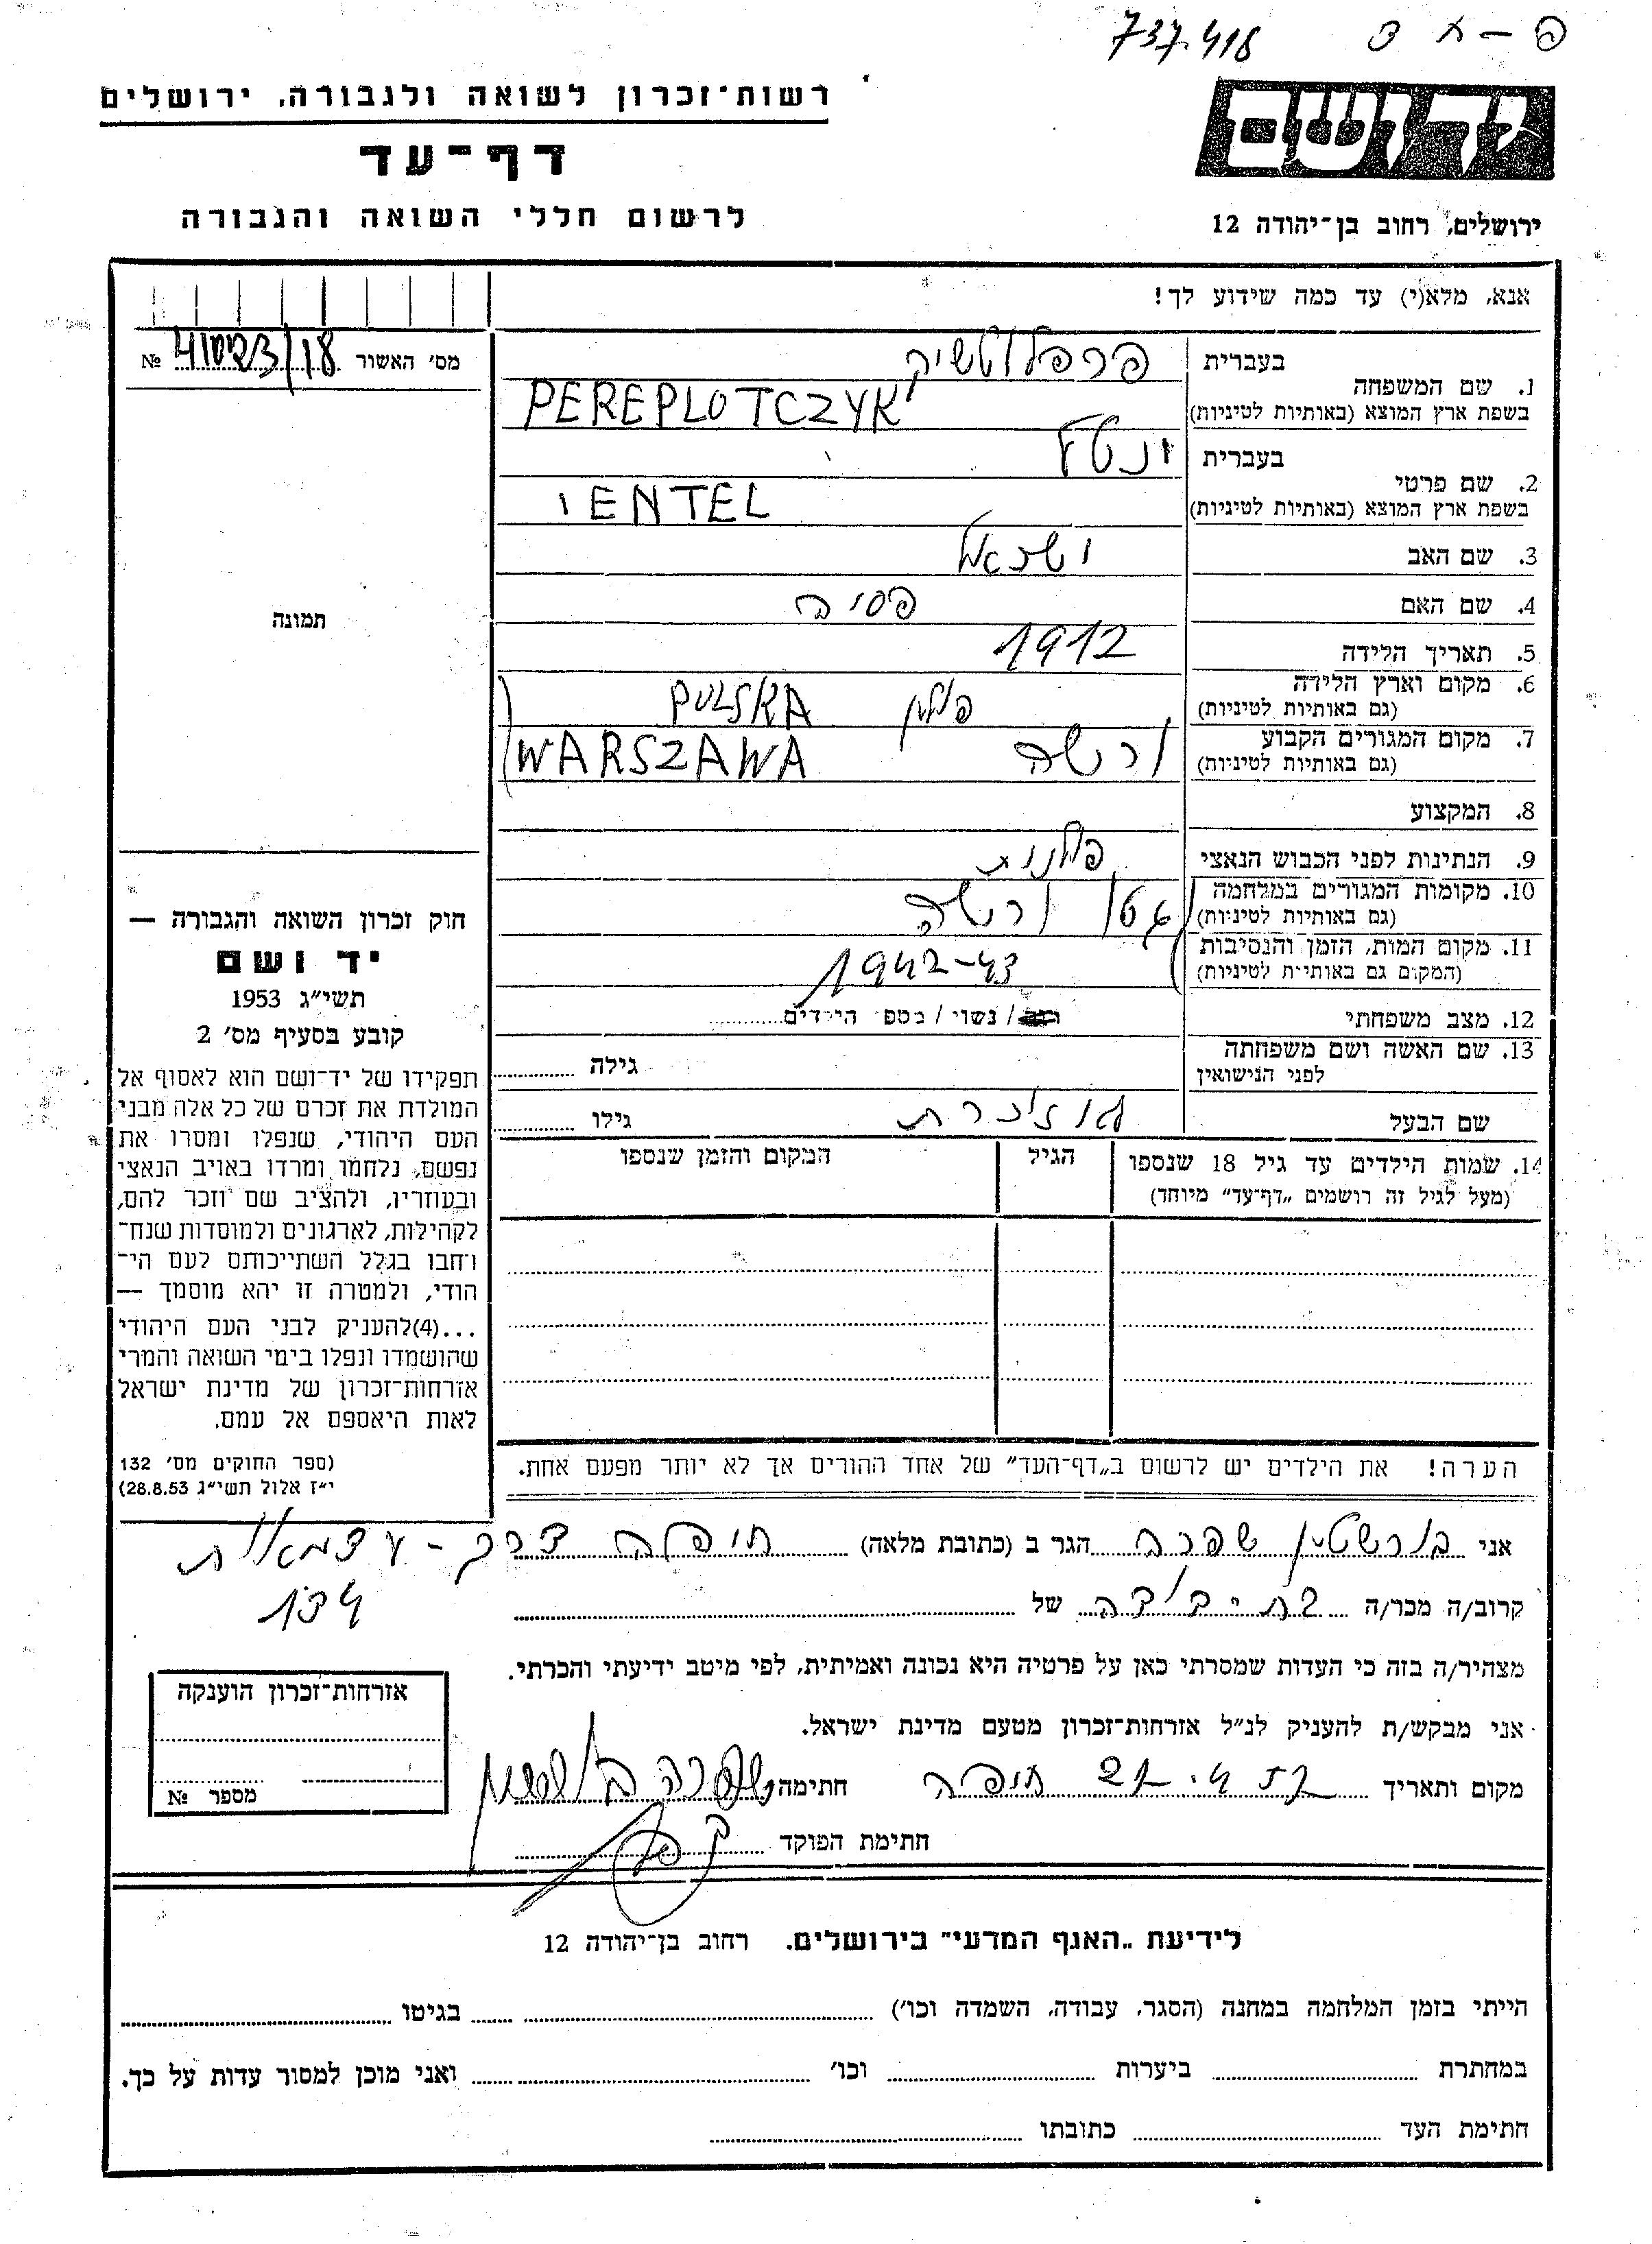 737.418 פ-א 3
רשות־זכרון לשואה ולגבורה, ירושלים
ידושם
דף־עד
לרשום חללי השואה והגבורה
ירושלים, רחוב בן־יהודה 12
אנא, מלא(י) עד כמה שידוע לך!
מס׳ האשור №
1. שם המשפחה
בעברית פרפלוטשיק
בשפת ארץ המוצא (באותיות לטיניות) PEREPLOTCZYK
2. שם פרטי
בעברית ינטל
בשפת ארץ המוצא (באותיות לטיניות) IENTEL
3. שם האב ישראל
4. שם האם פסיה
5. תאריך הלידה 1912
6. מקום וארץ הלידה
(גם באותיות לטיניות) פולין POLSKA
7. מקום המגורים הקבוע
(גם באותיות לטיניות) ורשה WARSZAWA
8. המקצוע
9. הנתינות לפני הכבוש הנאצי פולנית
10. מקומות המגורים במלחמה
(גם באותיות לטיניות) גטו ורשה
11. מקום המות, הזמן והנסיבות
(המקום גם באותיות לטיניות) 1942-43
12. מצב משפחתי / נשוי / מספר הילדים
13. שם האשה ושם משפחתה
לפני הנישואין גילה
שם הבעל גילו
14. שמות הילדים עד גיל 18 שנספו הגיל המקום והזמן שנספו
(מעל לגיל זה רושמים „דף־עד״ מיוחד)
תמונה
חוק זכרון השואה והגבורה —
יד ושם
תשי״ג 1953
קובע בסעיף מס׳ 2
תפקידו של יד־ושם הוא לאסוף אל
המולדת את זכרם של כל אלה מבני
העם היהודי, שנפלו ומסרו את
נפשם, נלחמו ומרדו באויב הנאצי
ובעוזריו, ולהציב שם וזכר להם,
לקהילות, לארגונים ולמוסדות שנח־
רחבו בגלל השתייכותם לעם הי־
הודי, ולמטרה זו יהא מוסמך —
...(4)להעניק לבני העם היהודי
שהושמדו ונפלו בימי השואה והמרי
אזרחות־זכרון של מדינת ישראל
לאות היאספם אל עמם.
(ספר החוקים מס׳ 132
י״ז אלול תשי״ג 28.8.53)
הערה! את הילדים יש לרשום ב„דף־העד״ של אחד ההורים אך לא יותר מפעם אחת.
אני בורשטין שפרה הגר ב (כתובת מלאה) חיפה דרך - עצמאות
134
קרוב/ה מכר/ה בת-דודה של
מצהיר/ה בזה כי העדות שמסרתי כאן על פרטיה היא נכונה ואמיתית, לפי מיטב ידיעתי והכרתי.
אני מבקש/ת להעניק לנ״ל אזרחות־זכרון מטעם מדינת ישראל.
מקום ותאריך חיפה חתימה
חתימת הפוקד
אזרחות־זכרון הוענקה
מספר №
לידיעת „האגף המדעי״ בירושלים, רחוב בן־יהודה 12
הייתי בזמן המלחמה במחנה (הסגר, עבודה, השמדה וכו׳) בגיטו
במחתרת ביערות וכו׳ ואני מוכן למסור עדות על כך.
חתימת העד כתובתו